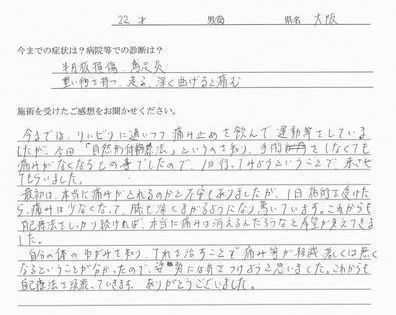 22 才 男 県名 大阪
今までの症状は？病院等での診断は？
半月板損傷、鵞足炎
重い物を持つ、走る、深く曲げると痛む
施術を受けたご感想をお聞かせください。
今までは、リハビリに通いつつ 痛み止めを飲んで運動等をしていま
したが、今回「自然形体療法」というのを知り、手術をしなくても
痛みがなくなるとの事でしたので、1日行ってみようということで、来させ
てもらいました。
最初は、本当に痛みがとれるのかと不安もありましたが、1日施術を受けた
ら、痛みは少なくなって、膝も深くまがるようになり驚いています。これからも
自己療法をしっかり続ければ、本当に痛みは消えるんだろうなと希望が見えてきま
した。
自分の体のゆがみを知り、それを治すことで痛み等が軽減、悪くは無く
なるということが分かったので、姿勢には気をつけようと思いました。これからも
自己療法を続けていきます。ありがとうございました。